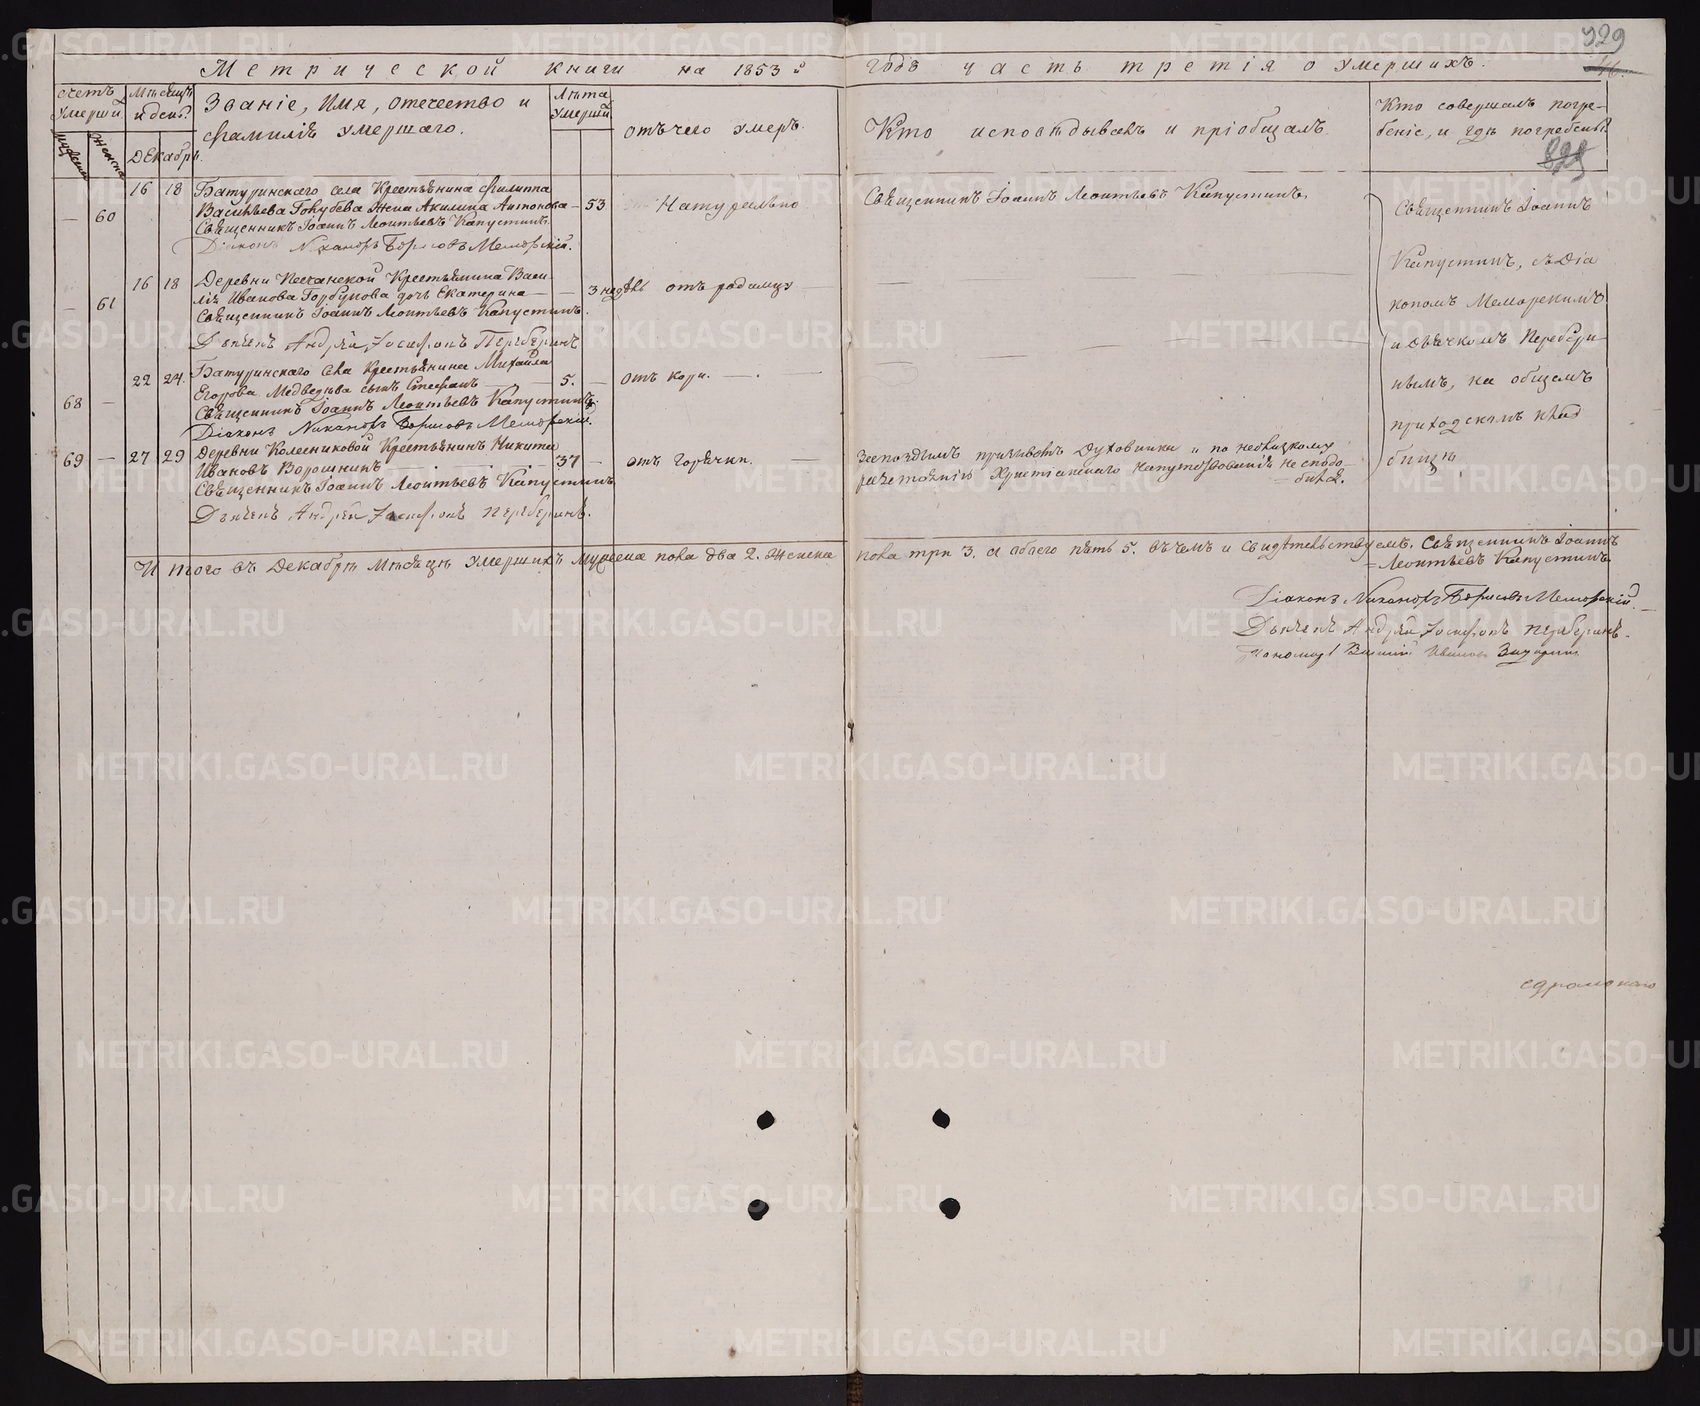 929
Метрической книги на 1853 й года часть третія о умершихъ.
46.
счетъ умерши
Мѣсяцъ и день
Званіе, Имя, отечество и
фамилія умершаго.
Лѣта умерши
отъ чего умеръ.
Кто исповѣдывалъ и пріобщалъ.
Кто совершалъ погре-
беніе, и гдѣ погребены?
мужеска
женска
Декабрь.
— 60 16 18 Батуринскаго села Крестьянина Филиппа
Васильева Голубева Жена Акилина Антонова — 53 Натурально
Священникъ Іоаннъ Леонтьевъ Капустинъ
Священникъ Іоаннъ Леонтьевъ Капустинъ.
Діаконъ Никаноръ Борисовъ Меморскій.
— 61 16 18 Деревни Песчанской Крестьянина Васи-
лія Иванова Горбунова дочь Екатерина — 3 недѣль отъ родимцу —
Священникъ Іоаннъ Леонтьевъ Капустинъ.
Дьячекъ Андрей Іосифовъ Переберинъ
68 — 22 24. Батуринскаго села Крестьянина Михайла
Егорова Медведева сынъ Стефанъ — 5. — отъ кори. —
Священникъ Іоаннъ Леонтьевъ Капустинъ.
Діаконъ Никаноръ Борисовъ Меморскій.
69 — 27 29 Деревни Колесниковой Крестьянинъ Никита
Ивановъ Ворошнинъ — 37 — отъ горячки. —
Священникъ Іоаннъ Леонтьевъ Капустинъ
Дьячекъ Андрей Іосифовъ Переберинъ.
Христіанскаго напутствованія не сподо-
билъ.
Священникъ Іоаннъ
Капустинъ, съ Діа
кономъ Меморскимъ
и дьячкомъ Перебери-
нымъ, на общемъ
приходскомъ клад
бищѣ
Итого въ Декабрѣ Мѣсяцѣ умершихъ Мужеска пола два 2. Женска пола три 3. а обоего пять 5. въ чемъ и свидѣтельствуемъ. Священникъ Іоаннъ
Леонтьевъ Капустинъ
Діаконъ Никаноръ Борисовъ Меморскій.
Дьячекъ Андрей Іосифовъ Переберинъ.
Пономарь Василій Ивановъ
METRIKI.GASO-URAL.RU